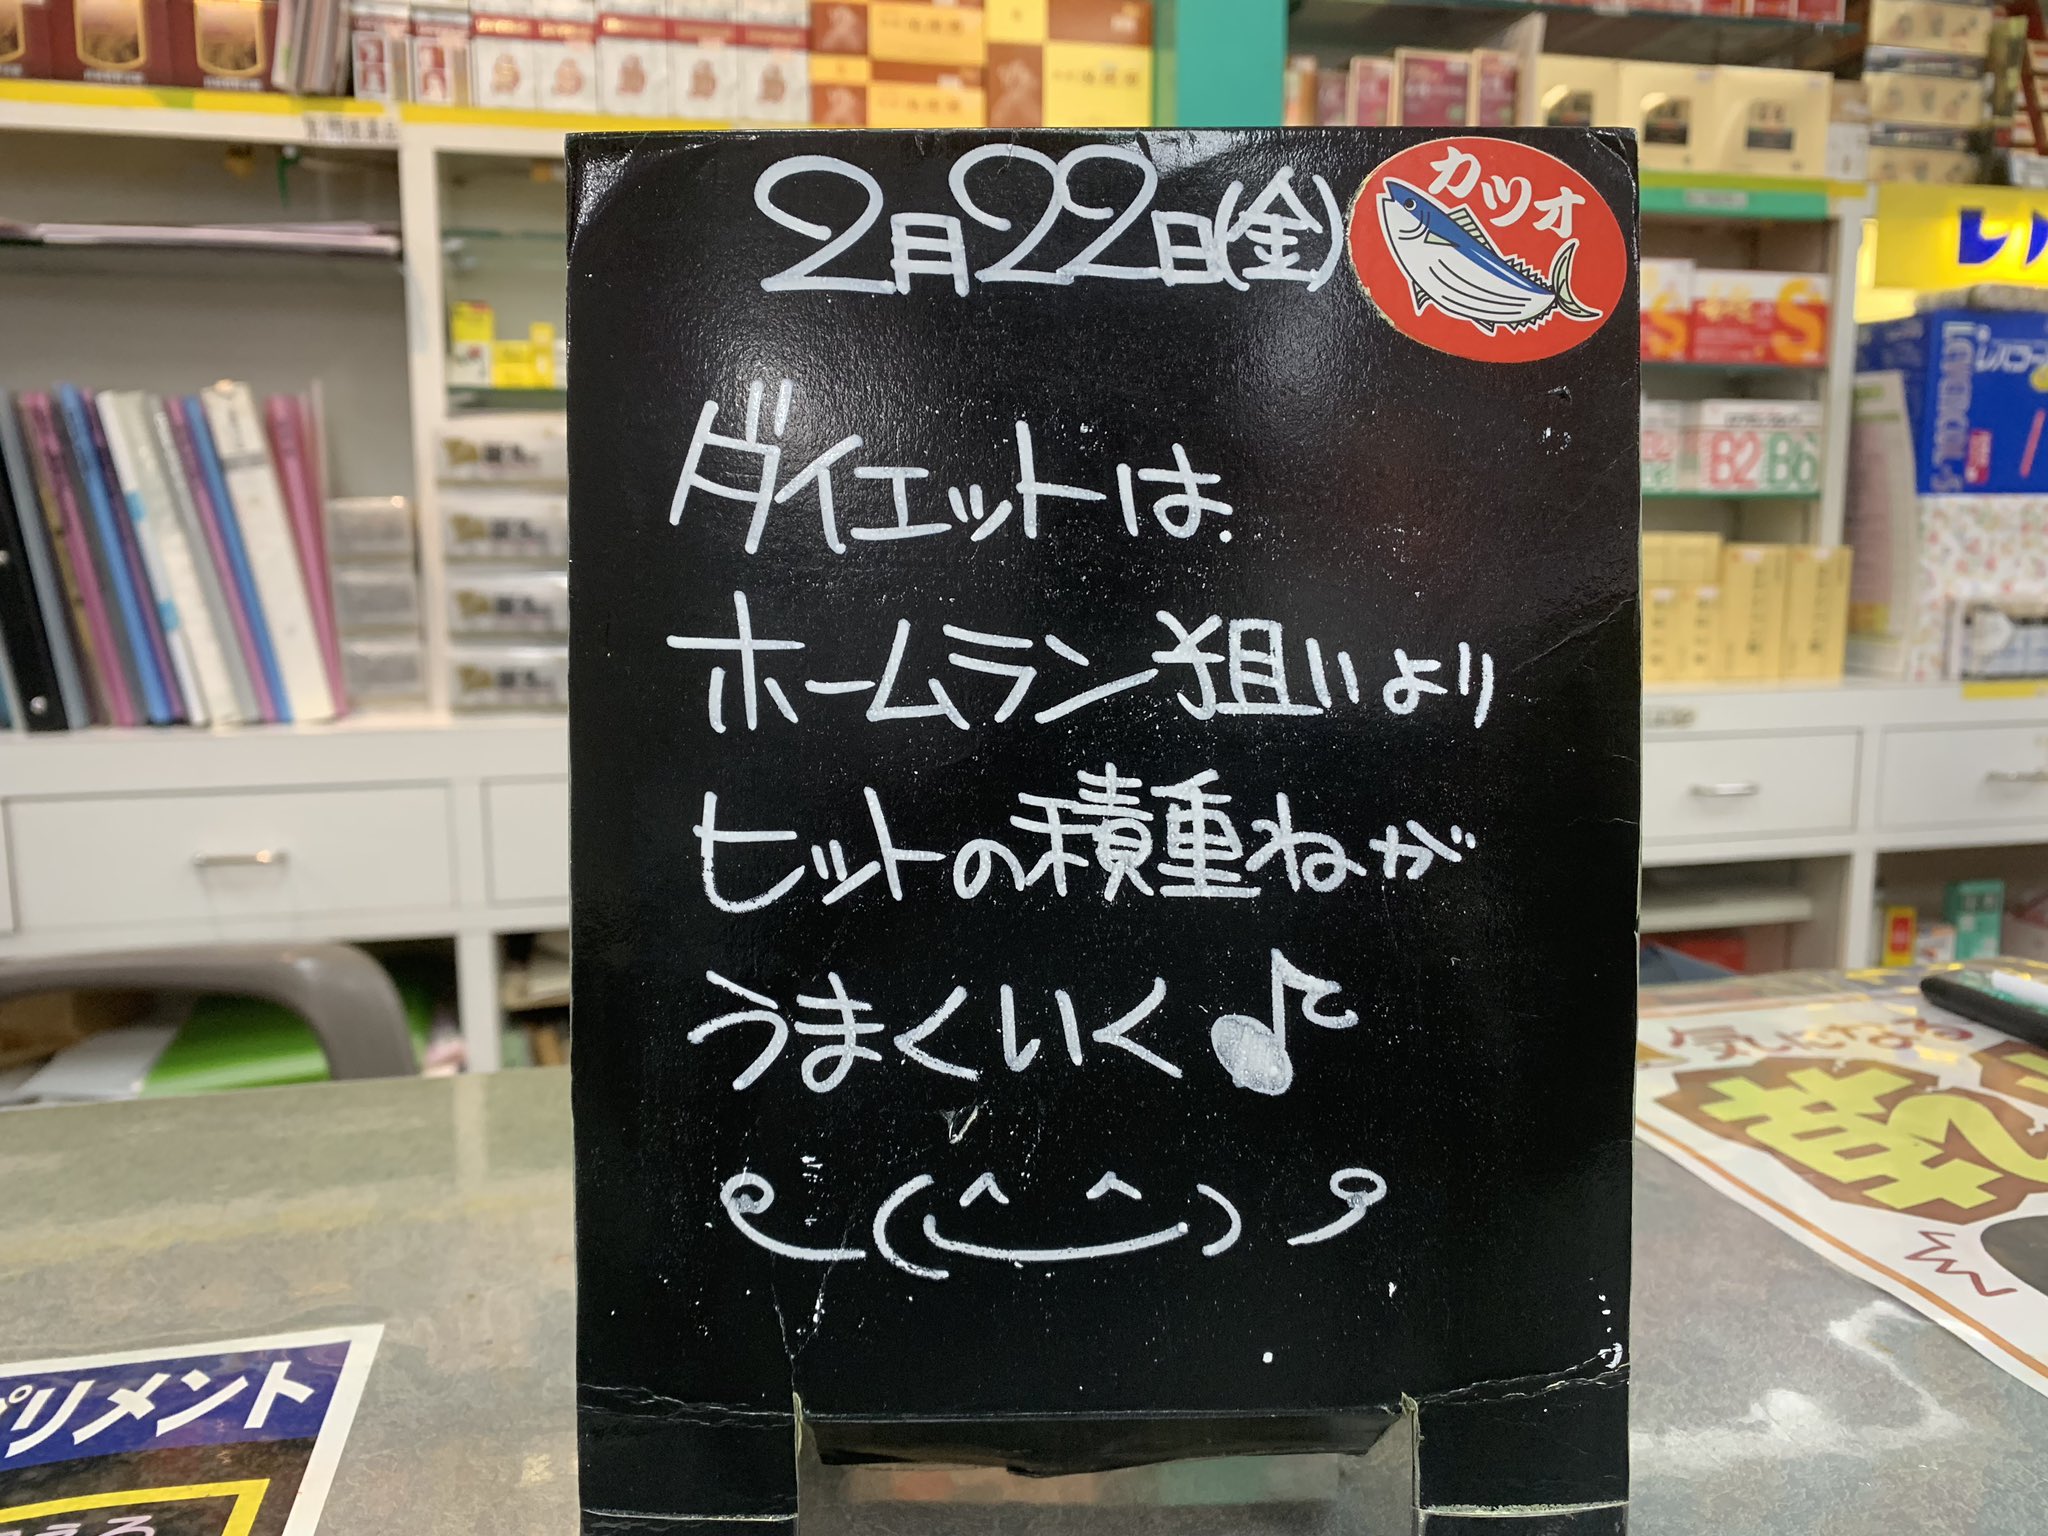 2月22日(金)
カツオ
ダイエットは
ホームラン狙いより
ヒットの積重ねが
うまくいく♪
B2 B6
LEVACOL-S
プリメント
気になる